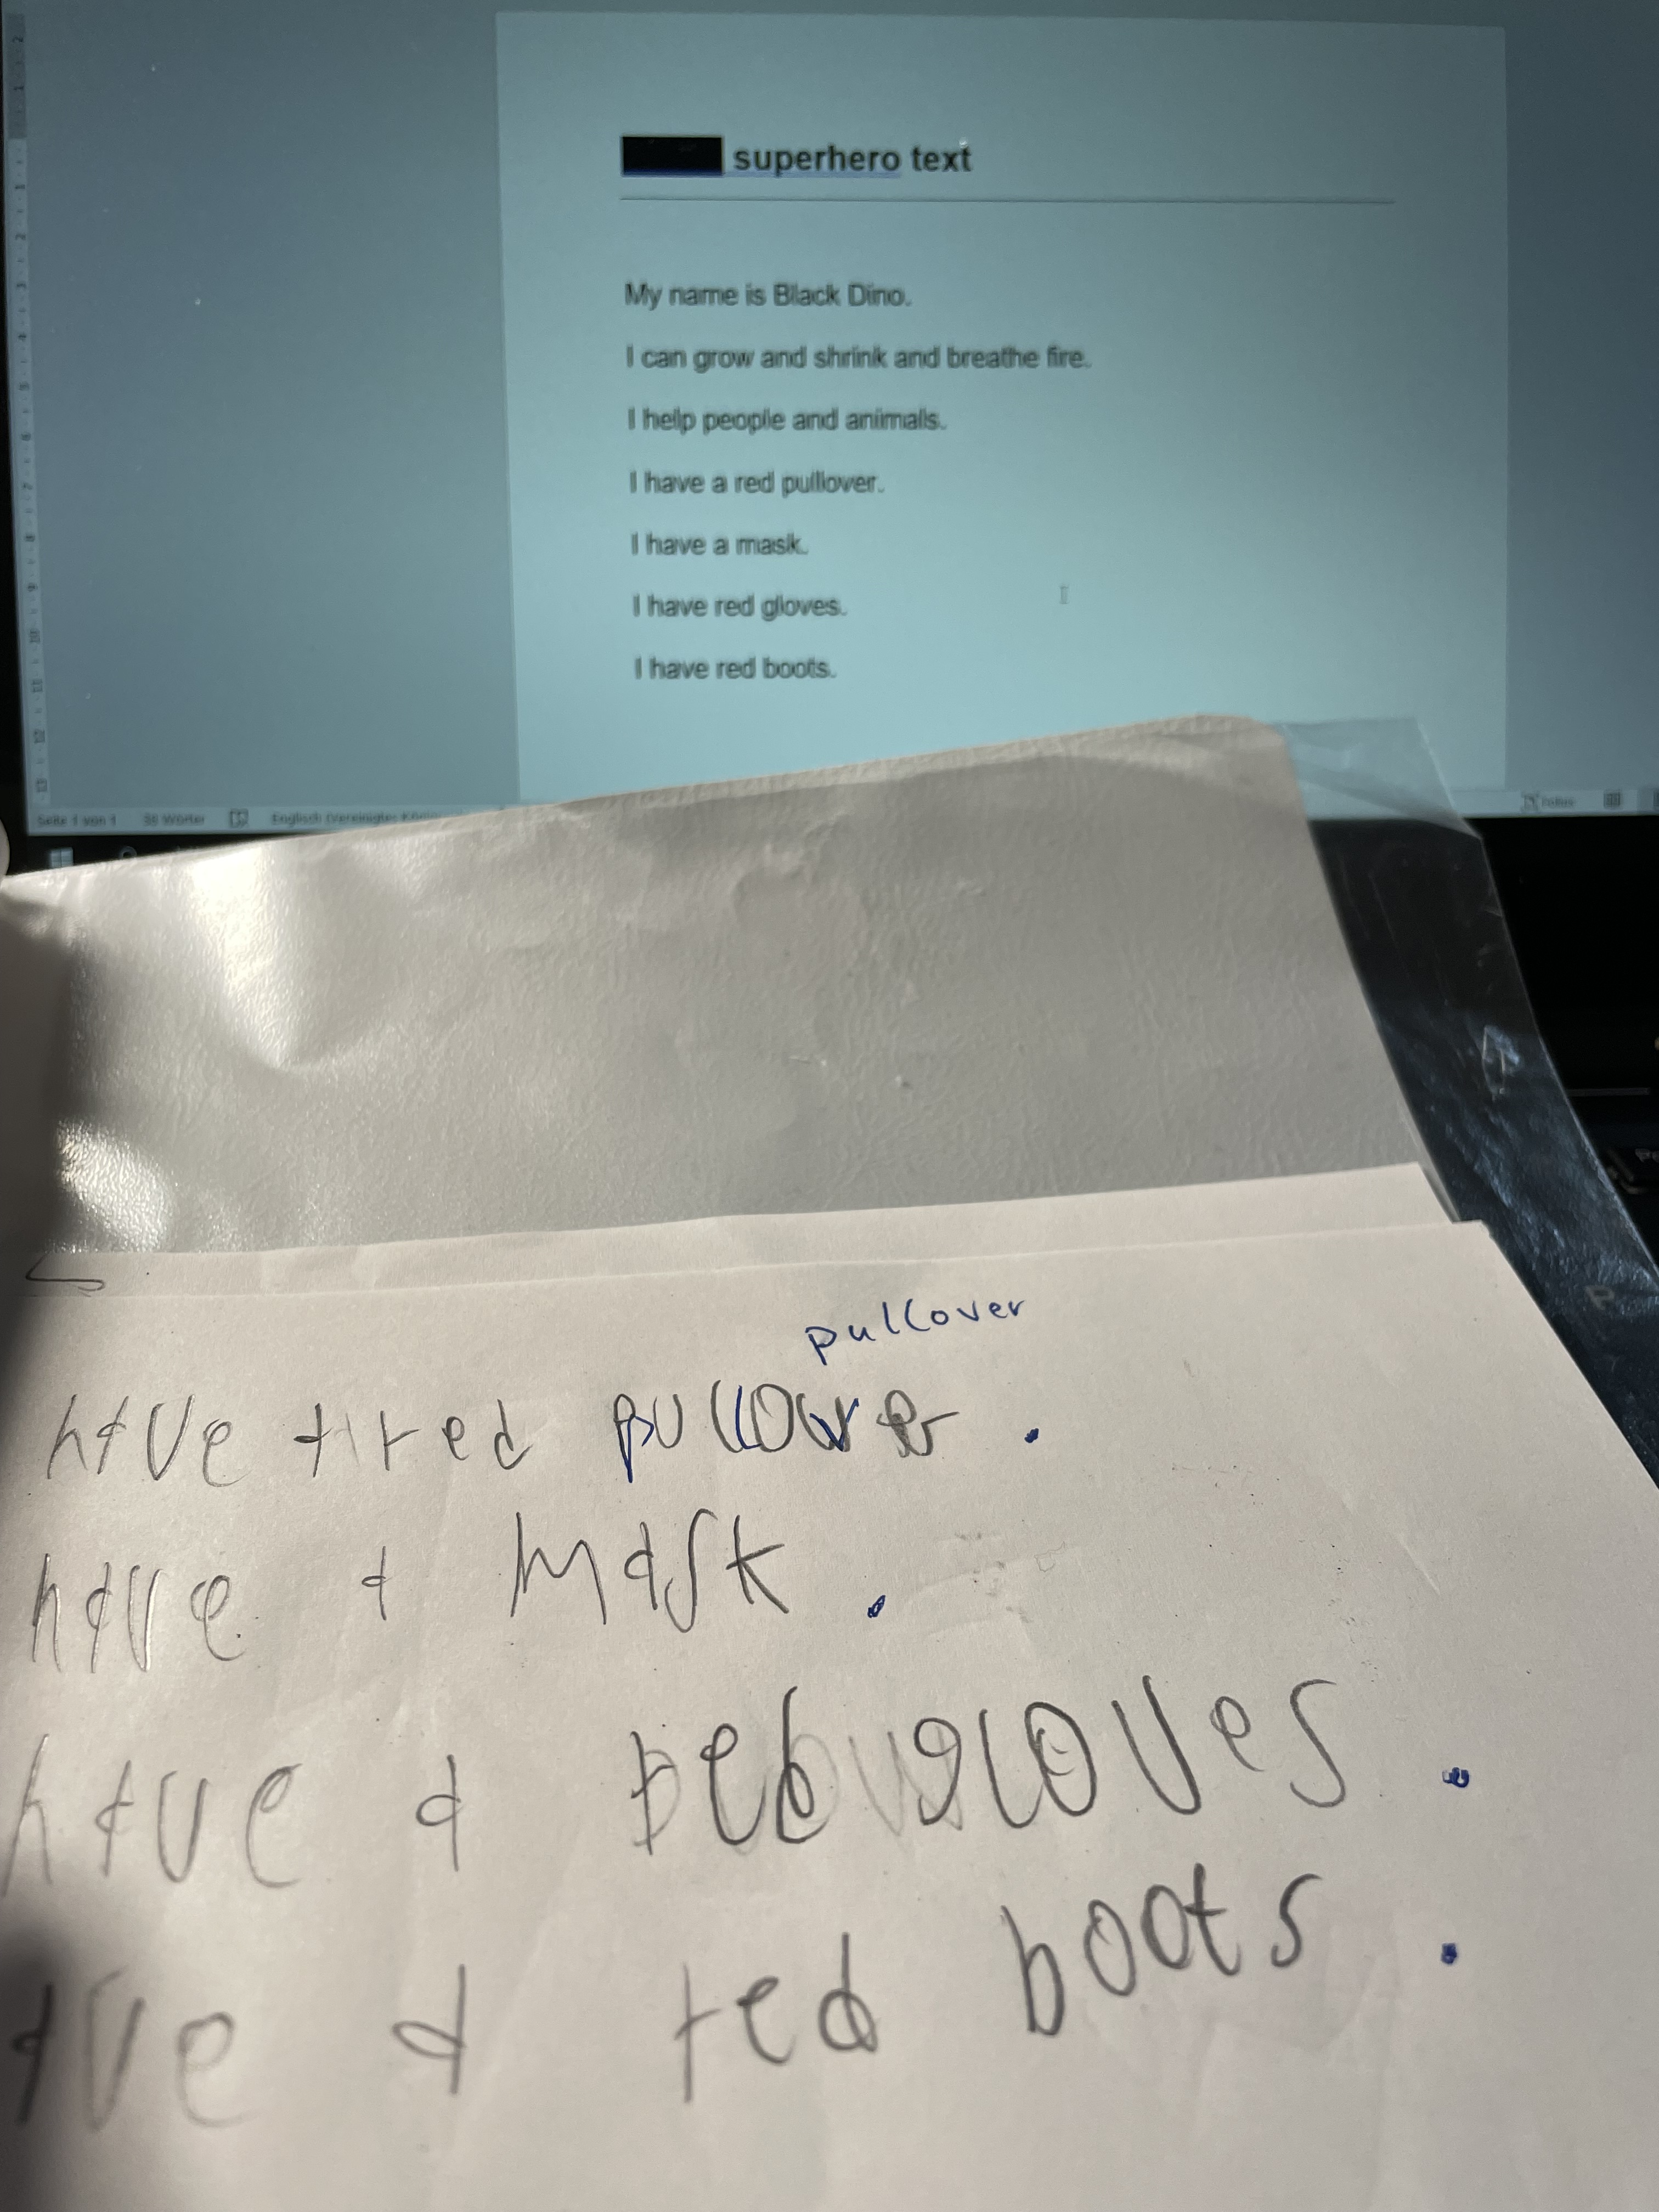 superhero text
My name is Black Dino.
I can grow and shrink and breathe fire.
I help people and animals.
I have a red pullover.
I have a mask.
I have red gloves.
I have red boots.
Seite 1 von 1 38 Wörter Englisch (Vereinigtes König
pullover
have a red pullover.
have a mask.
have a reb gloves.
ave a red boots.